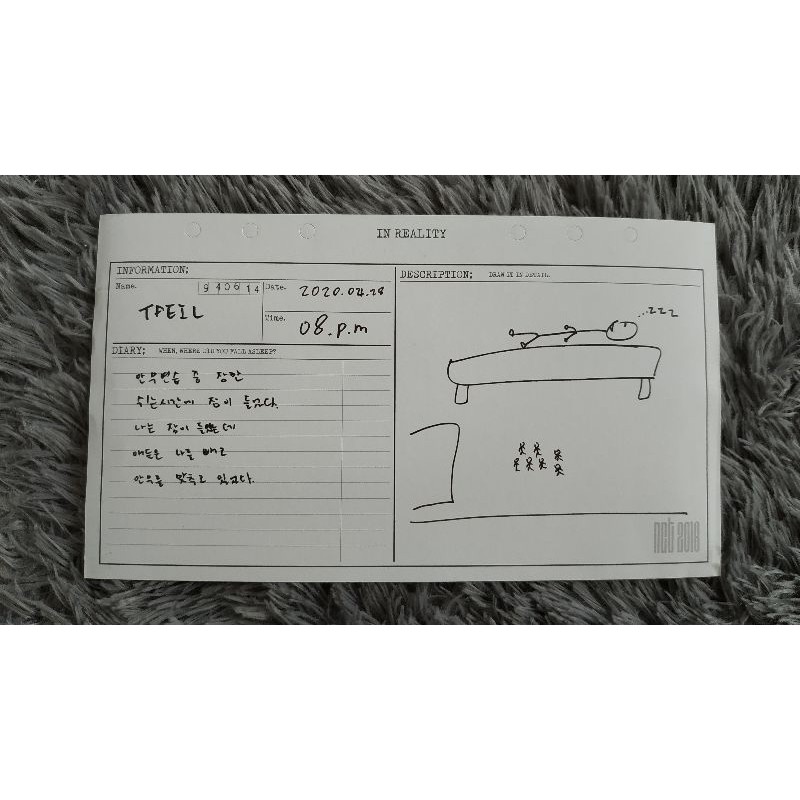 IN REALITY
INFORMATION;
Name.
940614
TAEIL
Date.
2020.04.28
Time.
08.p.m
DIARY; WHEN, WHERE DID YOU FALL ASLEEP?
안무연습 중 잠깐
쉬는시간에 잠이 들었다.
나는 잠이 들었는데
애들은 나를 빼고
안무를 맞추고 있었다.
DESCRIPTION; DRAW IT IN DETAIL.
...zzz
nct 2018